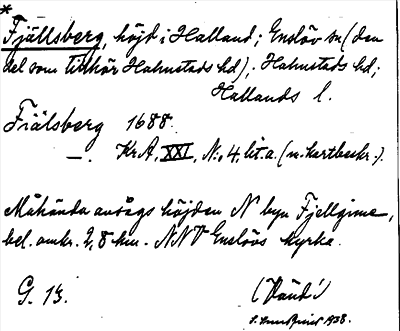 *
Fjällsberg, höjd i Halland; Enslöv sn (den
del som tillhör Halmstads hd); Halmstads hd;
Hallands l.
Fiälsberg 1688.
—. KrA, XXI, N:, 4, lit. a. (m. kartbeskr.).
Måhända avsågs höjden N byn Fjellgime,
bel. omkr. 2,8 km. NNV Enslövs kyrka.
G. 13.
1938.